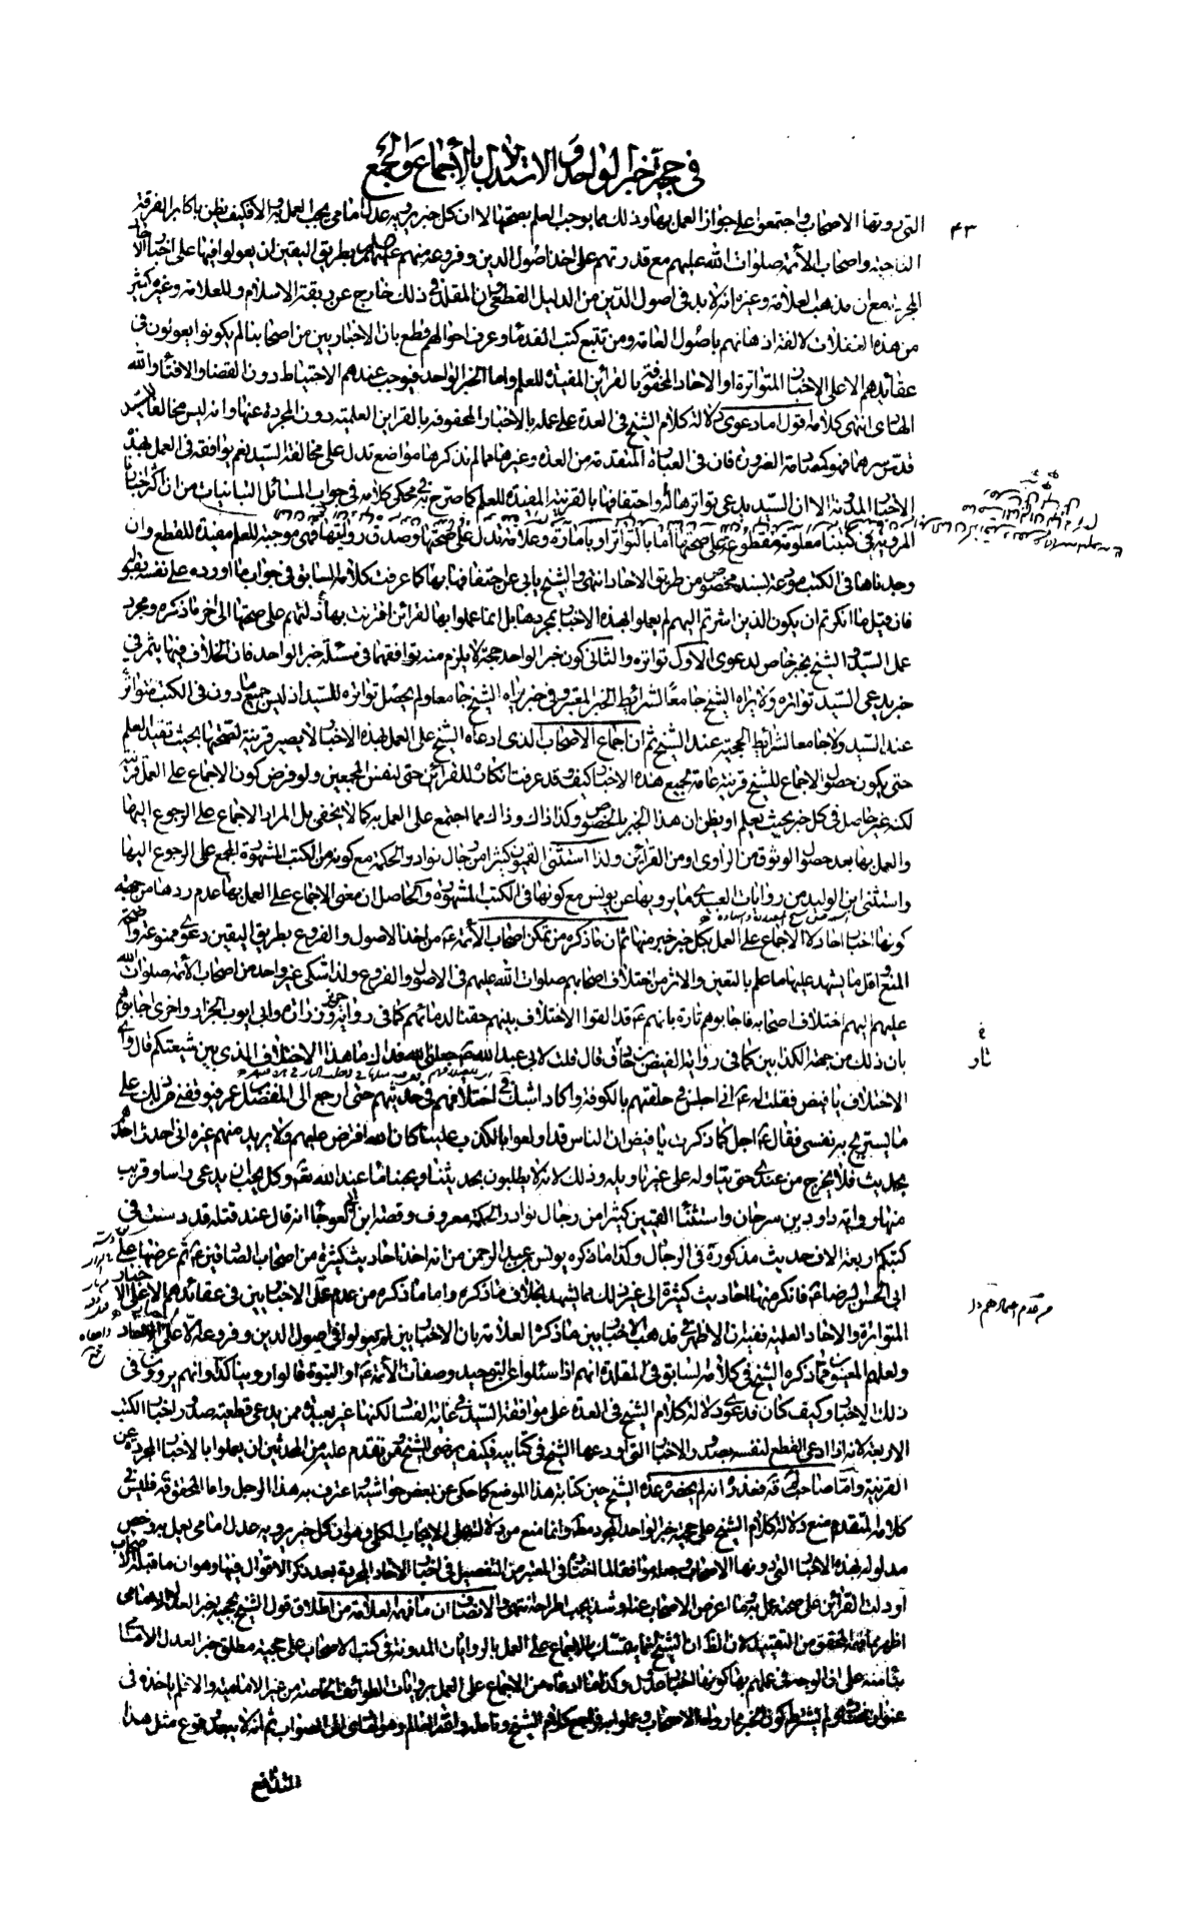 في حجية خبر الواحد والاستدلال بالإجماع
٤٣
التي رووها الاصحاب واجتمعوا على جواز العمل بها وذلك مما يوجب العلم بصحتها لا ان كل خبر يرويه عدل امامي يجب العمل به والا فكيف يظن باكابر الفرقة
الناجية واصحاب الأئمة صلوات الله عليهم مع قدرتهم على اخذ اصول الدين وفروعه منهم بطريق اليقين ان يعولوا فيها على اخبار الآحاد
المجردة مع ان مذهب العلامة وغيره انه لا بد في اصول الدين من الدليل القطعي وان المقلد في ذلك خارج عن ربقة الاسلام وللعلامة وغيره كثير
من هذه الغفلات لالفة اذهانهم باصول العامة ومن تتبع كتب القدماء وعرف احوالهم قطع بان الاخباريين من اصحابنا لم يكونوا يعولون في
عقائدهم الا على الاخبار المتواترة او الآحاد المحفوفة بالقرائن المفيدة للعلم واما الخبر الواحد فيوجب عندهم الاحتياط دون القضاء والافتاء والله
الهادي انتهى كلامه اقول اما دعوى دلالة كلام الشيخ في العدة على عمله بالاخبار المحفوفة بالقراين العلمية دون المجردة عنها وانه ليس مخالفا للسيد
قدس سرهما فهو كمصادمة الضرورة فان في العبارة المتقدمة من العدة وغيرها مما لم نذكرها مواضع تدل على مخالفة السيد نعم يوافقه في العمل بهذه
الاخبار المدونة الا ان السيد يدعي تواترها له واحتفافها بالقرينة المفيدة للعلم كما صرح به في محكي كلامه في جواب المسائل التبانيات من ان اكثر اخبارنا
المروية في كتبنا معلومة مقطوعة على صحتها اما بالتواتر او بامارة وعلامة تدل على صحتها وصدق رواتها فهي موجبة للعلم مفيدة للقطع وان
وجدناها في الكتب مودعة بسند مخصوص من طريق الاحاد انتهى والشيخ يأبى عن احتفافها بها كما عرفت كلامه السابق في جواب ما اورده على نفسه بقوله
فان قيل ما انكرتم ان يكون الذين اشرتم اليهم لم يعملوا بهذه الاخبار بمجردها بل انما عملوا بها لقرائن اقترنت بها دلتهم على صحتها الى اخر ما ذكره ومجرد
عمل السيد والشيخ بخبر خاص لدعوى الاول تواتره والثاني كون خبر الواحد حجة لا يلزم منه توافقهما في مسئلة خبر الواحد فان الخلاف فيها يثمر في
خبر يدعي السيد تواتره ولا يراه الشيخ جامعا لشرائط الخبر المعتبر وفي خبر يراه الشيخ جامعا ولم يحصل تواتره للسيد اذ ليس جميع ما دون في الكتب متواترا
عند السيد ولا جامعا لشرائط الحجية عند الشيخ ثم ان اجماع الاصحاب الذي ادعاه الشيخ على العمل بهذه الاخبار لا يصير قرينة لصحتها بحيث تفيد العلم
حتى يكون حصول الاجماع للشيخ قرينة عامة لجميع هذه الاخبار كيف وقد عرفت انكاره للقرائن حتى لنفس المجمعين ولو فرض كون الاجماع على العمل قرينة
لكنه غير حاصل في كل خبر بحيث يعلم او يظن ان هذا الخبر بالخصوص وكذا ذاك وذاك مما اجتمع على العمل به كما لا يخفى بل المراد الاجماع على الرجوع اليها
والعمل بها بعد حصول الوثوق من الراوي او من القرائن ولذا استثنى القميون كثيرا من رجال نوادر الحكمة مع كونه من الكتب المشهورة المجمع على الرجوع اليها
واستثنى ابن الوليد من روايات العبيدي ما يرويها عن يونس مع كونها في الكتب المشهورة والحاصل ان معنى الاجماع على العمل بها عدم ردها من جهة
كونها اخبار احاد لا الاجماع على العمل بكل خبر خبر منها ثم ان ما ذكره من تمكن اصحاب الأئمة من اخذ الاصول والفروع بطريق اليقين دعوى ممنوعة واضحة
المنع واقل ما يشهد عليها ما علم بالعين والاثر من اختلاف اصحابهم صلوات الله عليهم في الاصول والفروع ولذا شكى غير واحد من اصحاب الأئمة صلوات الله
عليهم اليهم اختلاف اصحابه فاجابوهم تارة بانهم ع قد القوا الاختلاف بينهم حقنا لدمائهم كما في رواية حريز وزرارة وابي ايوب الجزار واخرى اجابوهم
بان ذلك من جهة الكذابين كما في رواية الفيض بن المختار قال قلت لابي عبد الله جعلني الله فداك ما هذا الاختلاف الذي بين شيعتكم قال واي
الاختلاف يا فيض فقلت له اني اجلس في حلقهم بالكوفة واكاد اشك في اختلافهم في حديثهم حتى ارجع الى المفضل بن عمر فيوقفني من ذلك على
ما تستريح به نفسي فقال اجل كما ذكرت يا فيض ان الناس قد اولعوا بالكذب علينا كان الله افترض عليهم ولا يريد منهم غيره اني احدث احدهم
بحديث فلا يخرج من عندي حتى يتأوله على غير تأويله وذلك لانهم لا يطلبون بحديثنا وبحبنا ما عند الله تعالى وكل يحب ان يدعى رأسا وقريب
منها رواية داود بن سرحان واستثناء القميين كثيرا من رجال نوادر الحكمة معروف وقصة ابن ابي العوجاء انه قال عند قتله قد دسست في
كتبكم اربعة الاف حديث مذكورة في الرجال وكذا ما ذكره يونس بن عبد الرحمن من انه اخذ احاديث كثيرة من اصحاب الصادقين ثم عرضها على
ابي الحسن الرضا ع فانكر منها احاديث كثيرة الى غير ذلك مما يشهد بخلاف ما ذكره واما ما ذكره من عدم عمل الاخباريين في عقائدهم الا على الاخبار
المتواترة والاحاد العلمية ففيه ان الاظهر في مذهب الاخباريين ما ذكره العلامة بان الاخباريين لم يعولوا في اصول الدين وفروعه الا على الآحاد
ولعلهم المعنيون مما ذكره الشيخ في كلامه السابق في المقلدة انهم اذا سئلوا عن التوحيد وصفات الأئمة او النبوة قالوا روينا كذا وانهم يروون في
ذلك الاخبار وكيف كان فدعوى دلالة كلام الشيخ في العدة على موافقة السيد في غاية الفساد لكنها غير بعيدة ممن يدعي قطعية صدور اخبار الكتب
الاربعة لانه اذا ادعى القطع لنفسه بصدور الاخبار التي اودعها الشيخ في كتابيه فكيف يرضى للشيخ ومن تقدم عليه من المحدثين ان يعملوا بالاخبار المجردة عن
القرينة واما صاحب المعالم قده فعذره انه لم يحضره عدة الشيخ حين كتابة هذا الموضع كما حكي عن بعض حواشيه واعترف به هذا الرجل واما المحقق قده فليس في
كلامه المتقدم منع دلالة كلام الشيخ على حجية خبر الواحد المجرد مطلقا وانما منع من دلالته على الايجاب الكلي وهو ان كل خبر يرويه عدل امامي يعمل به وخص
مدلوله بهذه الاخبار التي دونها الاصحاب وجعله موافقا لما اختاره في المعتبر من التفصيل في اخبار الآحاد المجردة بعد ذكر الاقوال فيها وهو ان ما قبله الاصحاب
او دلت القرائن على صحته عمل به وما اعرض الاصحاب عنه او شذ يجب اطراحه انتهى والانصاف ان ما فهمه العلامة من اطلاق قول الشيخ بحجية خبر العدل الامامي
اظهر مما فهمه المحقق من التقييد لان الظاهر ان الشيخ انما يتمسك بالاجماع على العمل بالروايات المدونة في كتب الاصحاب على حجية مطلق خبر العدل الامامي
بناء منه على ان الوجه في عملهم بها كونها اخبار عدول وكذا ما ادعاه من الاجماع على العمل بروايات الطوائف الخاصة من غير الامامية والا فلم يأخذه في
عنوان مختاره ولم يشترط كون الخبر مما رواه الاصحاب وعملوا به فراجع كلام الشيخ وتأمله والله العالم وهو الهادي الى الصواب ثم انه لا يبعد وقوع مثل هذا
التدافع